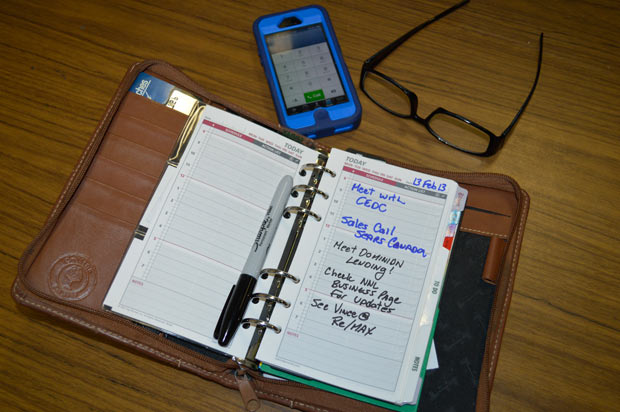 TODAY
SCHEDULE
NOTES
Sharpie
TODAY
13 Feb 13
SCHEDULE
Meet with
CEDC
Sales Call
Sears Canada
Meet Dominion
Lending!
Check NNL
Business Page
For updates
See Vince @
Re/MAX
NOTES
TO DO
NOTES